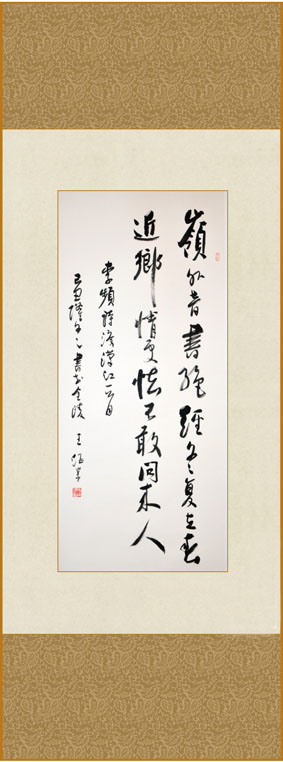 嶺外音書絕經冬復立春
近鄉情更怯不敢問來人
李頻詩渡漢江一首
書於金陵 王